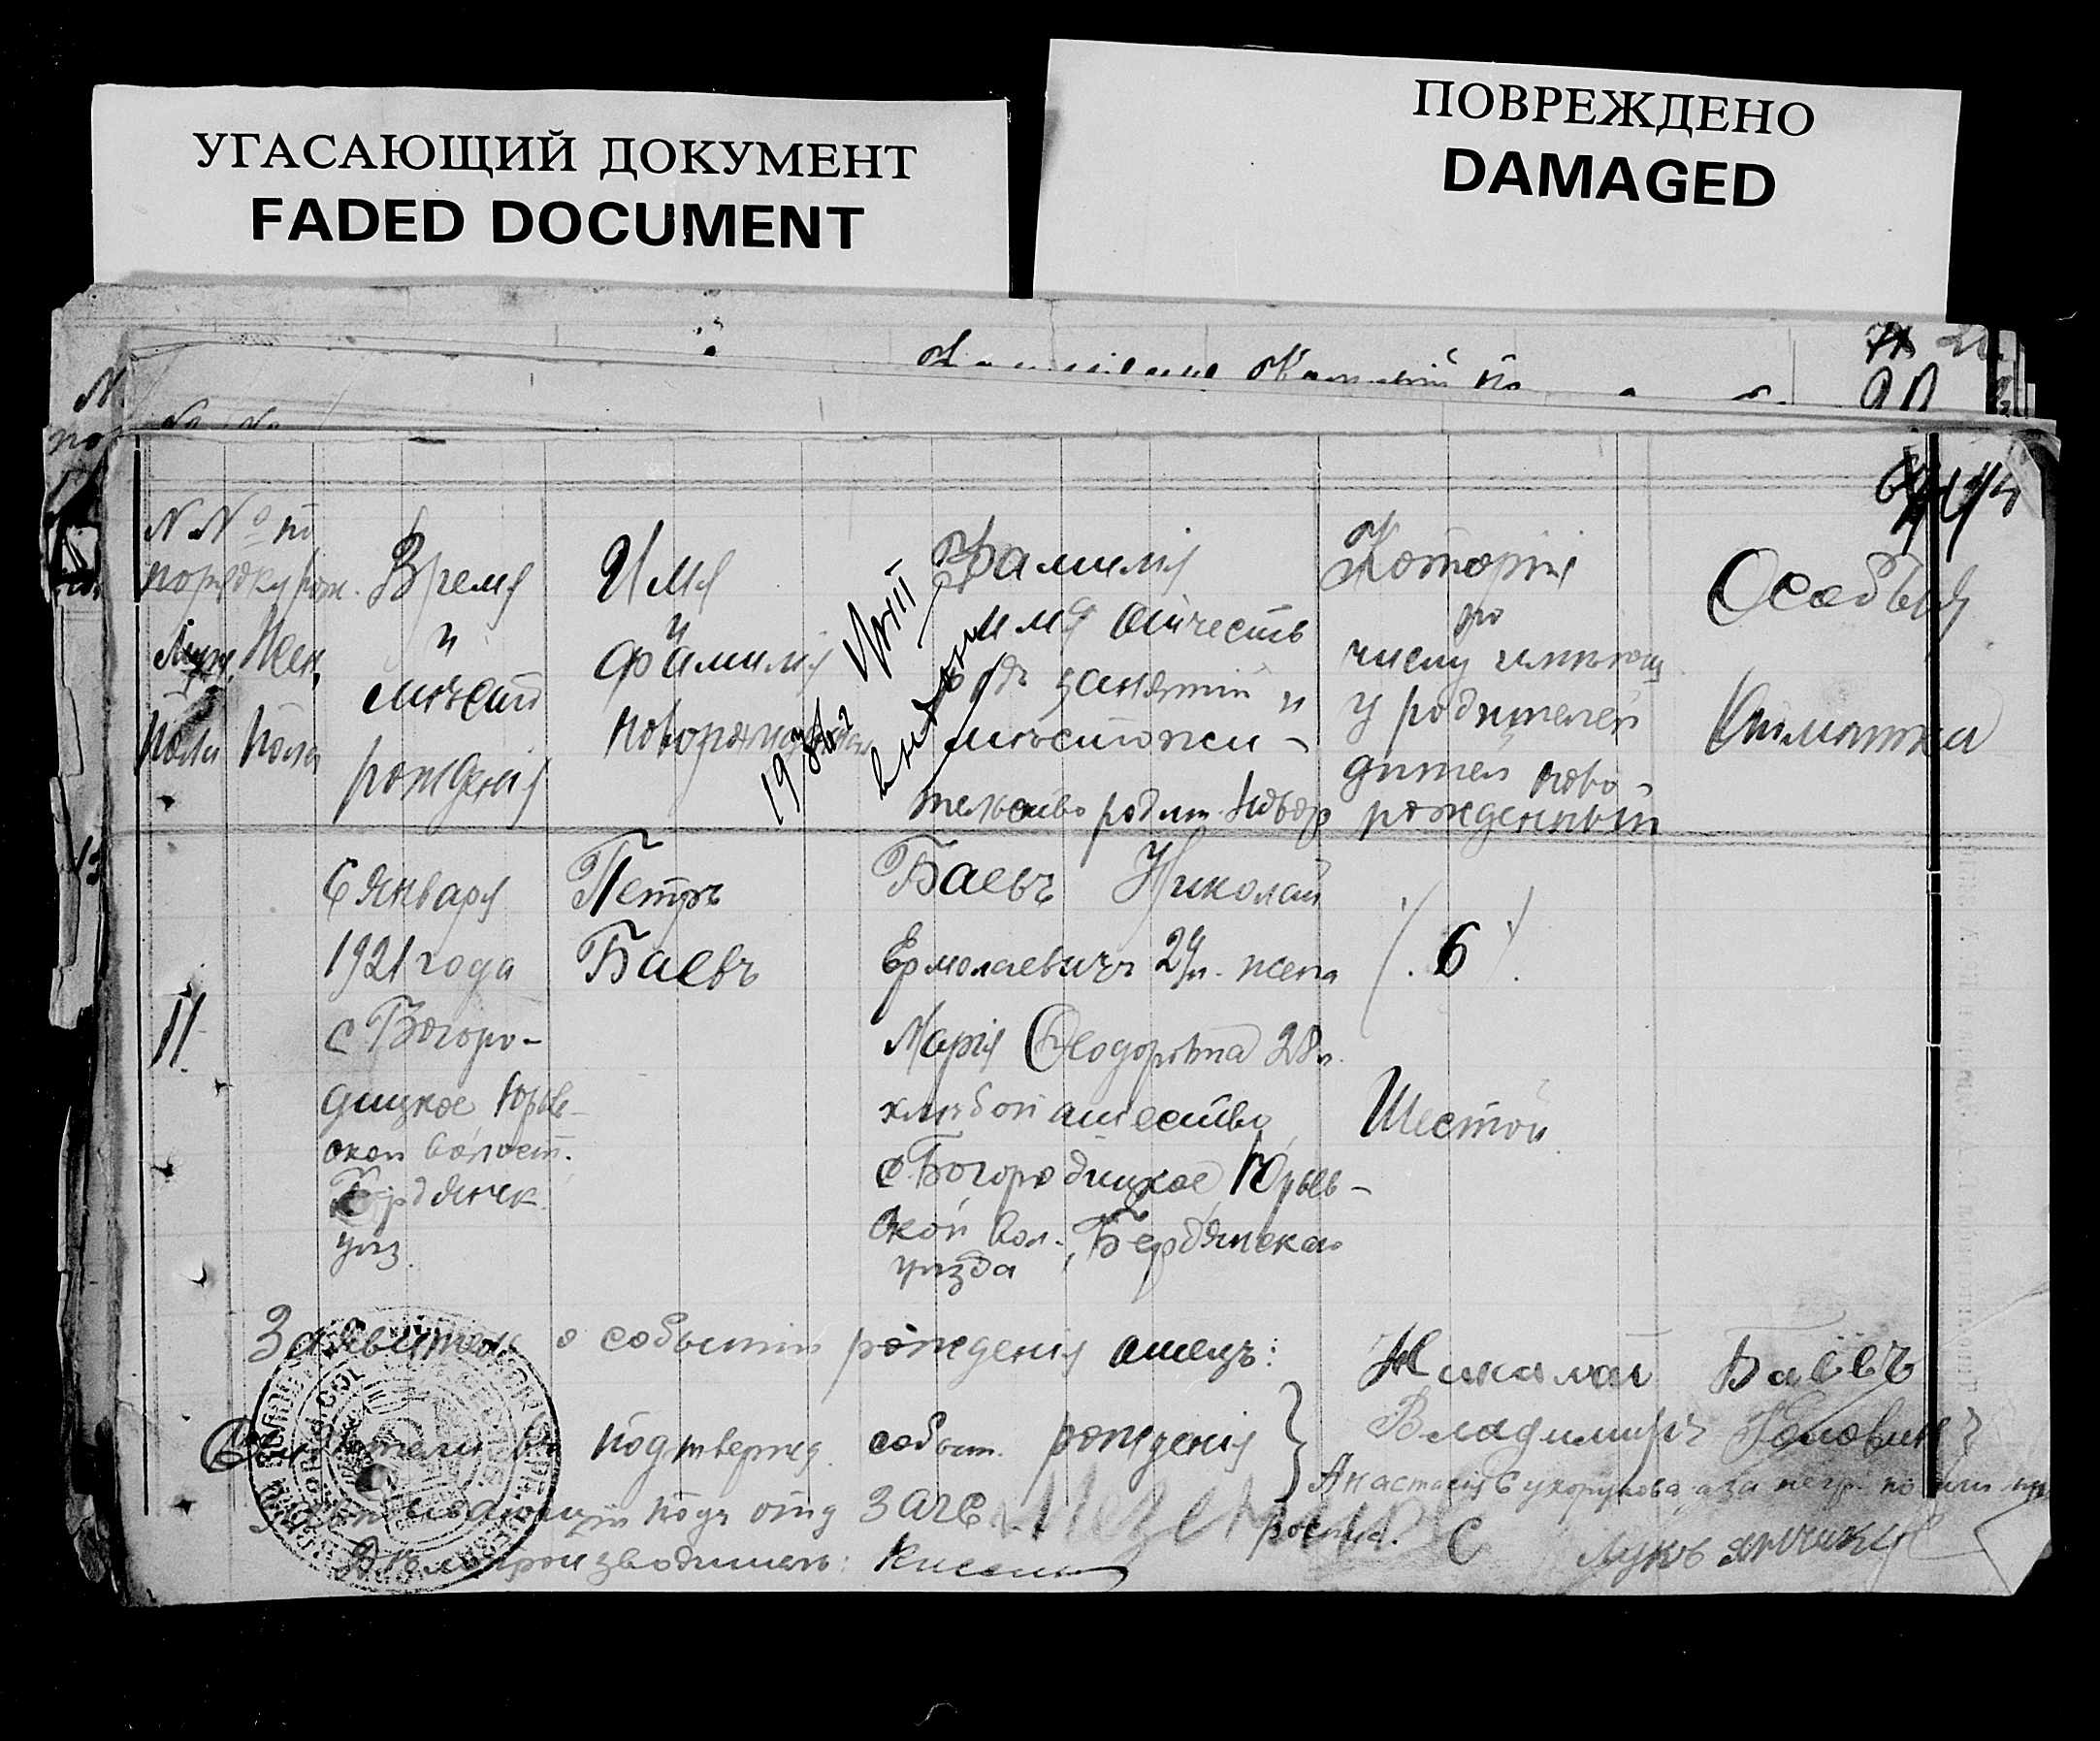 УГАСАЮЩИЙ ДОКУМЕНТ
FADED DOCUMENT
ПОВРЕЖДЕНО
DAMAGED
N Nº по
порядку рож.
Муж. Жен.
пола пола
Время
и
мѣсто
рожденія
Имя
и
фамилія
Фамилія
имя отчество
родъ занятій и
мѣстожи-
тельство родит. новор
Который
по
числу
у родителей
дѣтей ново-
рожденный
Особыя
Отмѣтка
11
6 Января
1921 года
с Богоро-
дицкое Юрьев-
ской волост.
Бердянск
уѣз.
Петръ
Баевъ
Баевъ Николай
Ермолаевичъ 29 л. жена
Марія Ѳеодоровна 28 л.
хлѣбопашество
с. Богородицкое Юрьев-
ской вол. Бердянскаго
уѣзда
6
Шестой
Заявитель о событіи рожденія отецъ: Николай Баевъ
Свидѣтели въ подтвержд. событ. рожденія Владимиръ
Анастасія
Завѣдывающій подъ отд ЗАГС
росписа.
Дѣлопроизводитель: